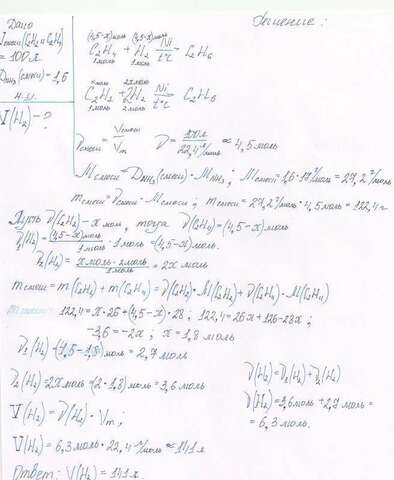 Дано
Vсмеси(C2H2 и C2H4)
= 100 л
DNH3(смеси) = 1,6
н.у.
V(H2) - ?
Решение:
(4,5-x)моль (4,5-x)моль
C2H4 + H2 Ni→t°C C2H6
1моль 1моль
xмоль 2xмоль
C2H2 + 2H2 Ni→t°C C2H6
1моль 2моль
νсмеси = Vсмеси/Vm ν = 100л/22,4л/моль ≈ 4,5 моль
Mсмеси = DNH3(смеси) · MNH3; Mсмеси = 1,6 · 17г/моль = 27,2г/моль
mсмеси = νсмеси · Mсмеси; mсмеси = 27,2г/моль · 4,5 моль = 122,4г
Пусть ν(C2H2) - x моль, тогда ν(C2H4) = (4,5-x)моль
ν1(H2) = (4,5-x)моль/1моль · 1моль = (4,5-x)моль.
ν2(H2) = xмоль · 2моль/1моль = 2x моль
mсмеси = m(C2H2) + m(C2H4) = ν(C2H2) · M(C2H2) + ν(C2H4) · M(C2H4)
122,4 = x · 26 + (4,5-x) · 28; 122,4 = 26x + 126 - 28x;
-3,6 = -2x; x = 1,8 моль
ν1(H2) = (4,5-1,8)моль = 2,7 моль
ν2(H2) = 2x моль = (2 · 1,8)моль = 3,6 моль
ν(H2) = ν1(H2) + ν2(H2)
ν(H2) = 3,6моль + 2,7 моль =
= 6,3 моль.
V(H2) = ν(H2) · Vm;
V(H2) = 6,3 моль · 22,4 л/моль ≈ 141 л
Ответ: V(H2) = 141 л.